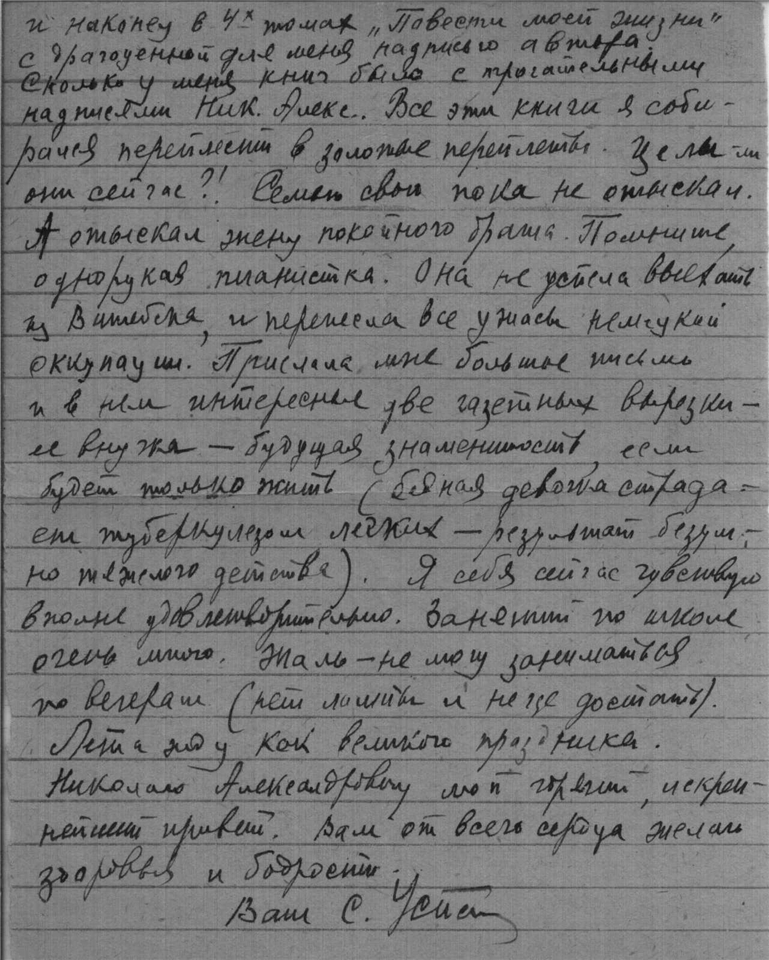 и наконец в 4х томах „Повести моей жизни"
с драгоценной для меня надписью автора.
Сколько у меня книг было с трогательными
надписями Ник. Алекс. Все эти книги я соби-
рался переплести в золотые переплеты. Целы-ли
они сейчас?! Семью свою пока не отыскал.
А отыскал жену покойного брата. Помните,
однорукая пианистка. Она не успела выехать
из Витебска, и перенесла все ужасы немецкой
оккупации. Прислала мне большое письмо
и в нем интересные две газетных вырезки—
ее внучка — будущая знаменитость, если
будет только жить (бедная девочка страда=
ет туберкулезом легких — результат безум-
но тяжелого детства). Я себя сейчас чувствую
вполне удовлетворительно. Занятий по школе
очень много. Жаль — не могу заниматься
по вечерам (нет лампы и негде достать).
Лета жду как великого праздника.
Николаю Александровичу мой горячий, искрен-
нейший привет. Вам от всего сердца желаю
здоровья и бодрости.
Ваш С.